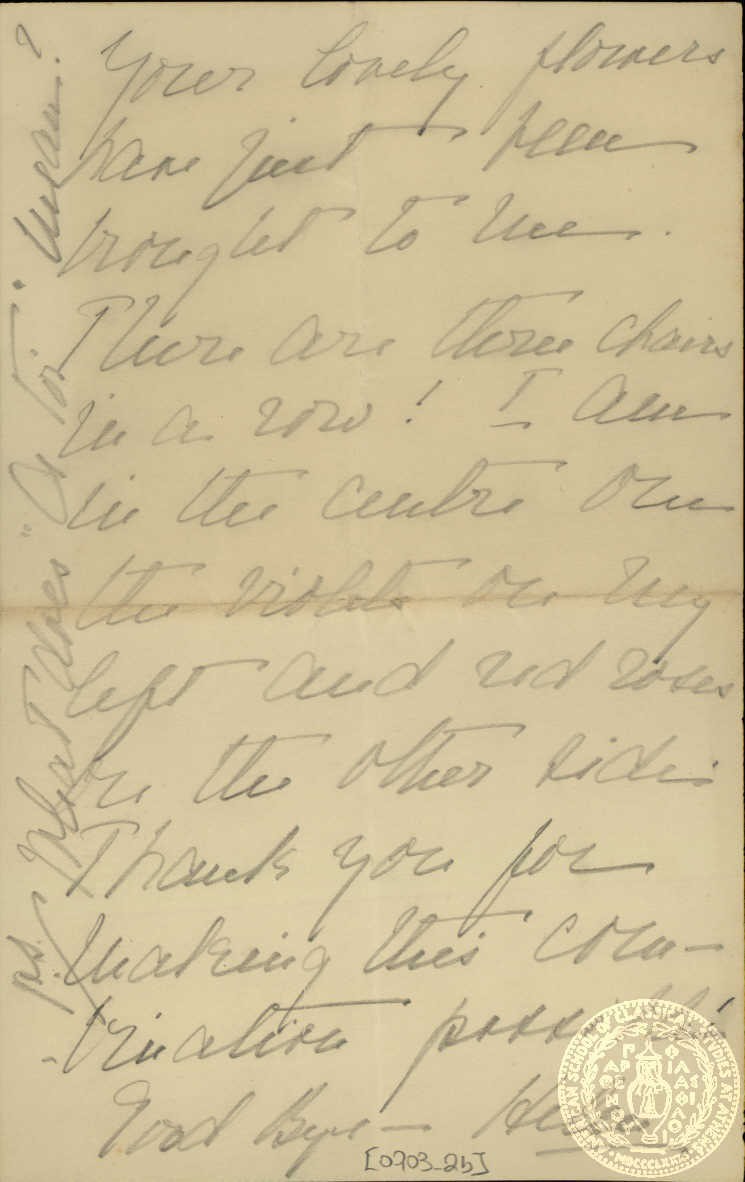 Your lovely flowers
have just been
brought to me.
There are three chairs
in a row! I am
in the centre one
the violets on my
left and red roses
on the other side.
Thank you for
making this com-
-bination possible
Good Bye -
p.s. What does "a toi" mean?
[0703_2b]
AMERICAN SCHOOL OF CLASSICAL STUDIES AT ATHENS
ΠΑΡΘΕΝΟΥ ΦΙΛΑΣ ΦΙΛΟΙ
MDCCCLXXXI